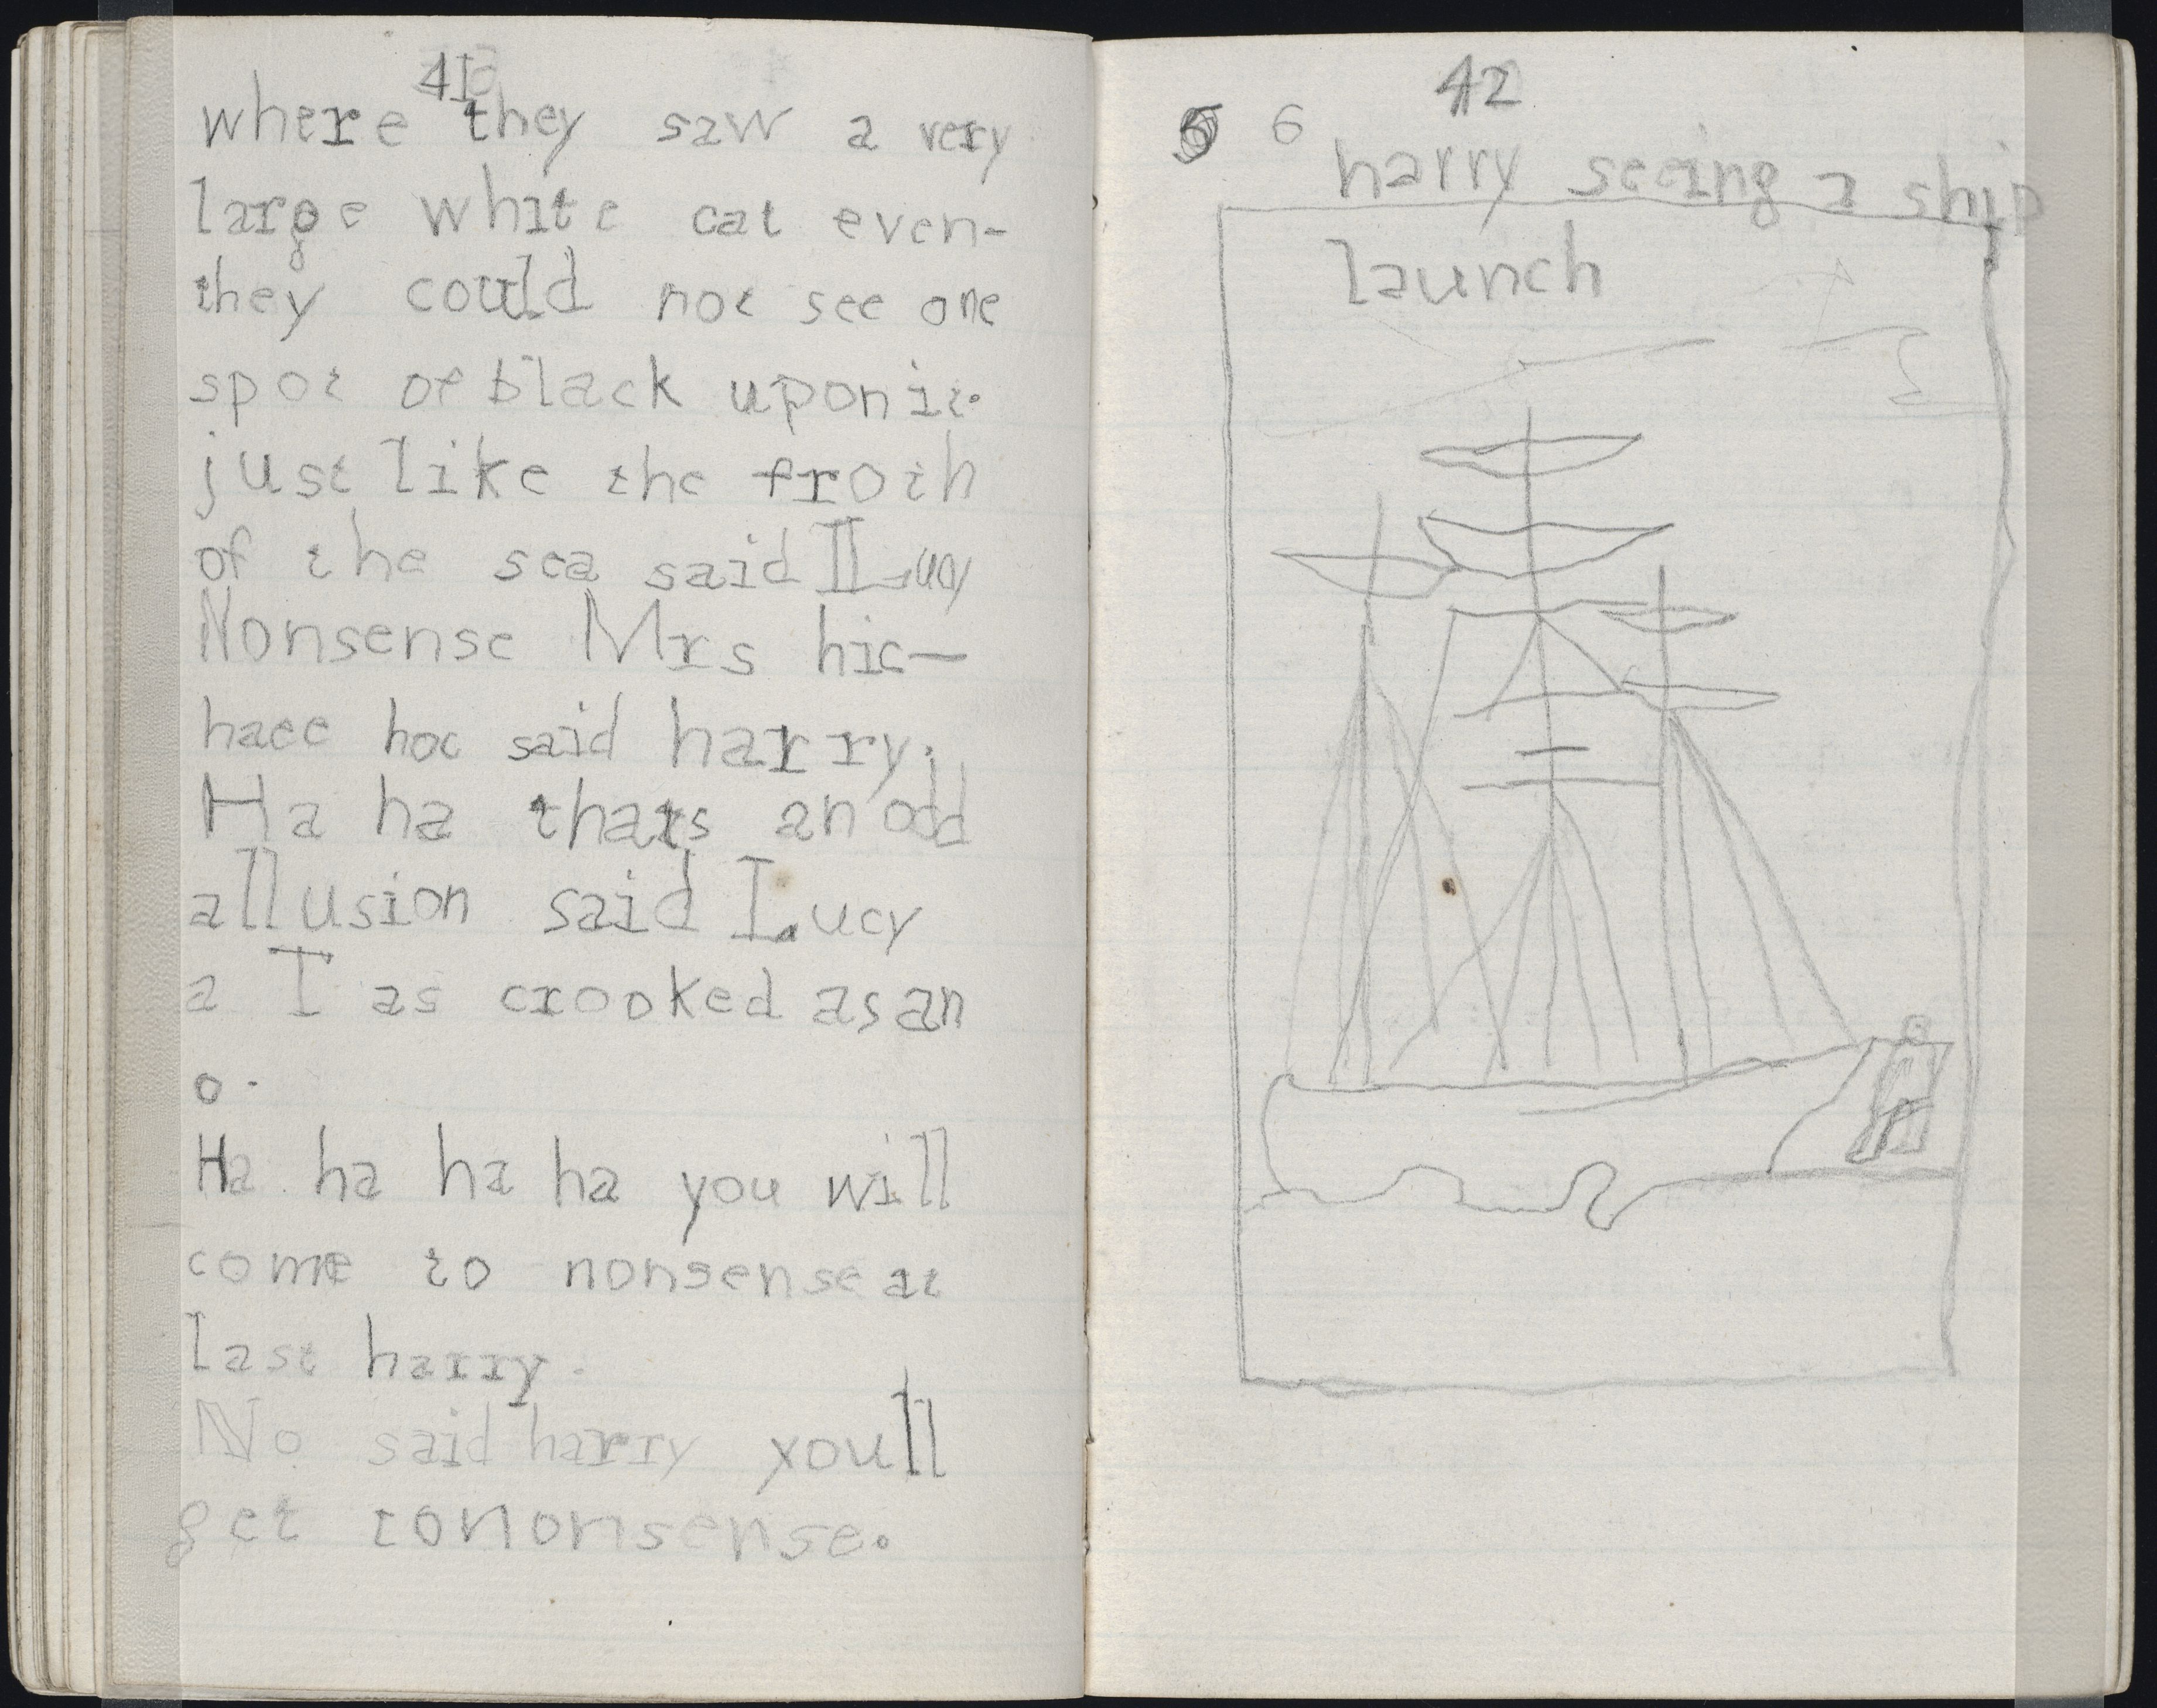 41
where they saw a very
large white cat even-
they could not see one
spot of black upon it.
just like the froth
of the sea said Lucy
Nonsense Mrs hic-
haec hoc said harry.
Ha ha thats an odd
allusion said Lucy
a I as crooked as an
o.
Ha ha ha ha you will
come to nonsense at
last harry.
No said harry youll
get to nonsense.
42
6
harry seeing a ship
launch